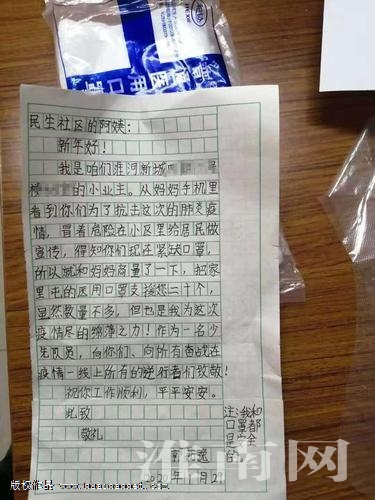 普通医用口罩
民生社区的阿姨：
新年好！
我是咱们淮河新城
楼 的小业主。从妈妈手机里
看到你们为了抗击这次的肺炎疫
情，冒着危险在小区里给居民做
宣传，得知你们现在紧缺口罩，
所以就和妈妈商量了一下，把家
里屯的医用口罩支援您二十个，
虽然数量不多，但也是我为这次
疫情尽的绵薄之力！作为一名少
先队员，向你们、向所有奋战在
疫情一线上所有的逆行者们致敬！
祝你工作顺利，平平安安。
此致
敬礼
注：我和
口罩都
是安全
的。
2020年1月29
淮南网